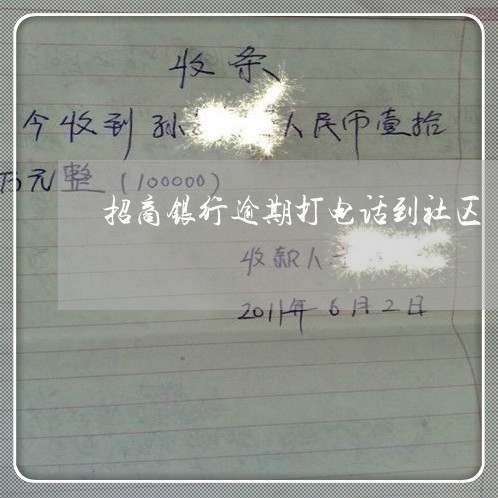 收条
今收到孙 人民币壹拾
万元整（100000）
招商银行逾期打电话到社区
收款人
2011年6月2日